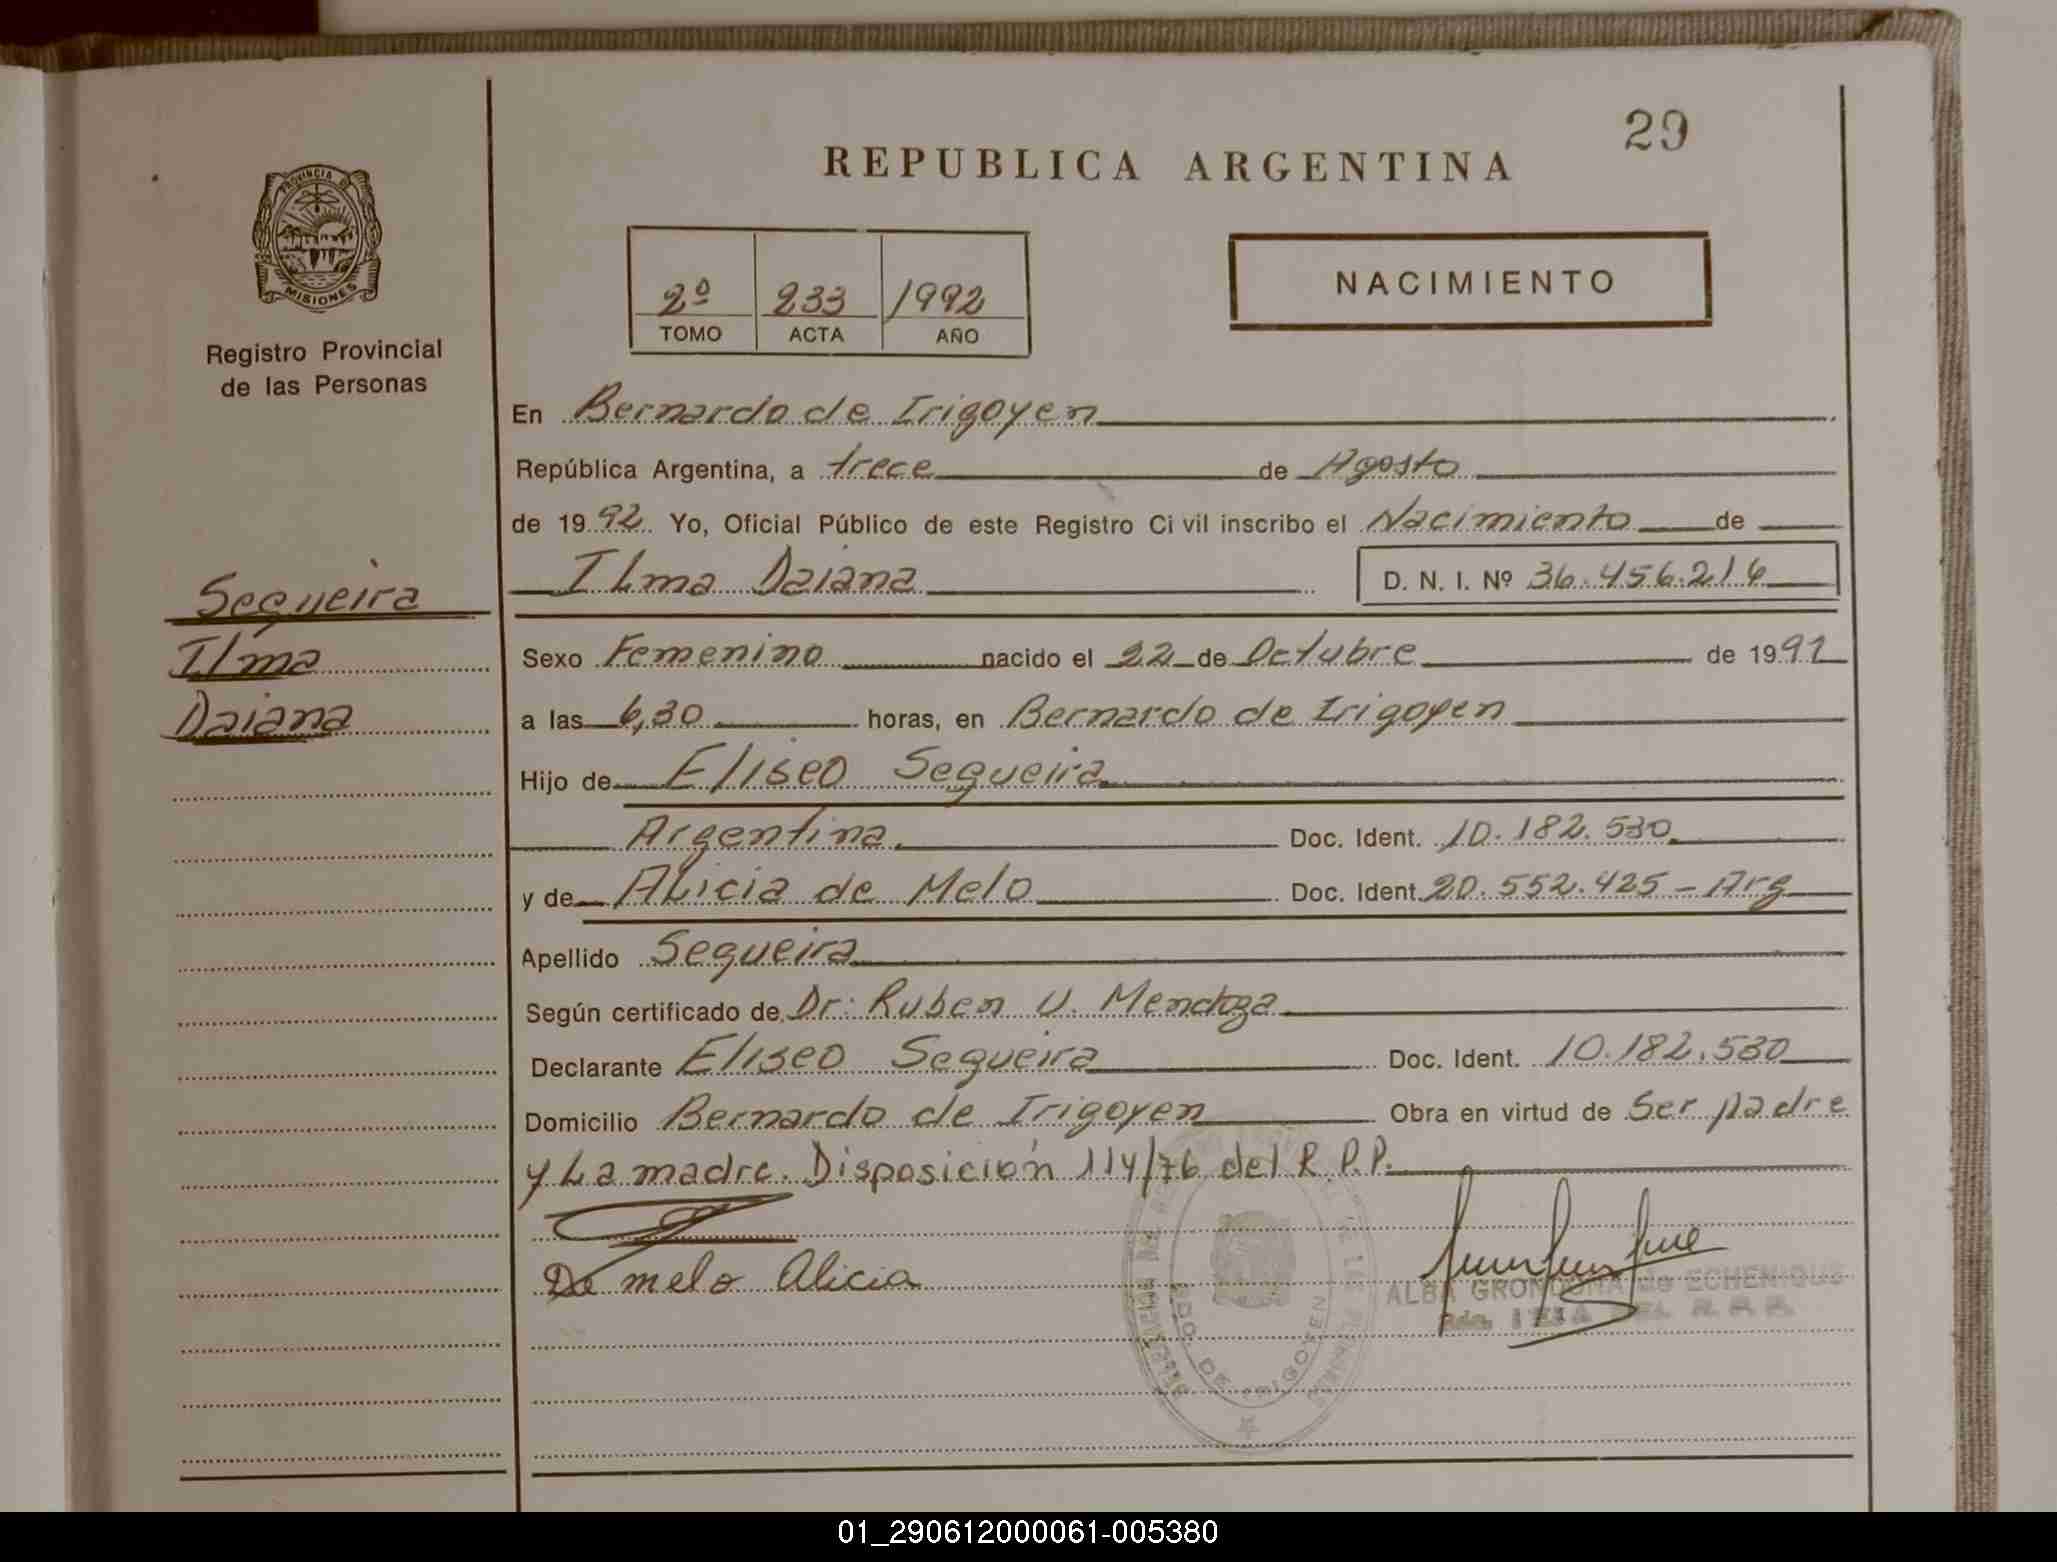 29
REPUBLICA ARGENTINA
PROVINCIA DE
MISIONES
Registro Provincial
de las Personas
2º 233 1992
TOMO ACTA AÑO
NACIMIENTO
En Bernardo de Irigoyen
República Argentina, a trece de Agosto
de 1992 Yo, Oficial Público de este Registro Civil inscribo el Nacimiento de
Ilma Daiana D. N. I. Nº 36.456.216
Segueira
Ilma
Daiana
Sexo Femenino nacido el 22 de Octubre de 1991
a las 6,30 horas, en Bernardo de Irigoyen
Hijo de Eliseo Segueira
Argentina. Doc. Ident. 10.182.530
y de Alicia de Melo Doc. Ident. 20.552.425 - Arg
Apellido Segueira
Según certificado de Dr: Ruben U. Mendoza
Declarante Eliseo Segueira Doc. Ident. 10.182.530
Domicilio Bernardo de Irigoyen Obra en virtud de Ser padre
y La madre. Disposición 114/76 del R.P.P.
De melo Alicia
ALBA GRONDONA de ECHENIQUE
BDO. DE IRIGOYEN
01_290612000061-005380